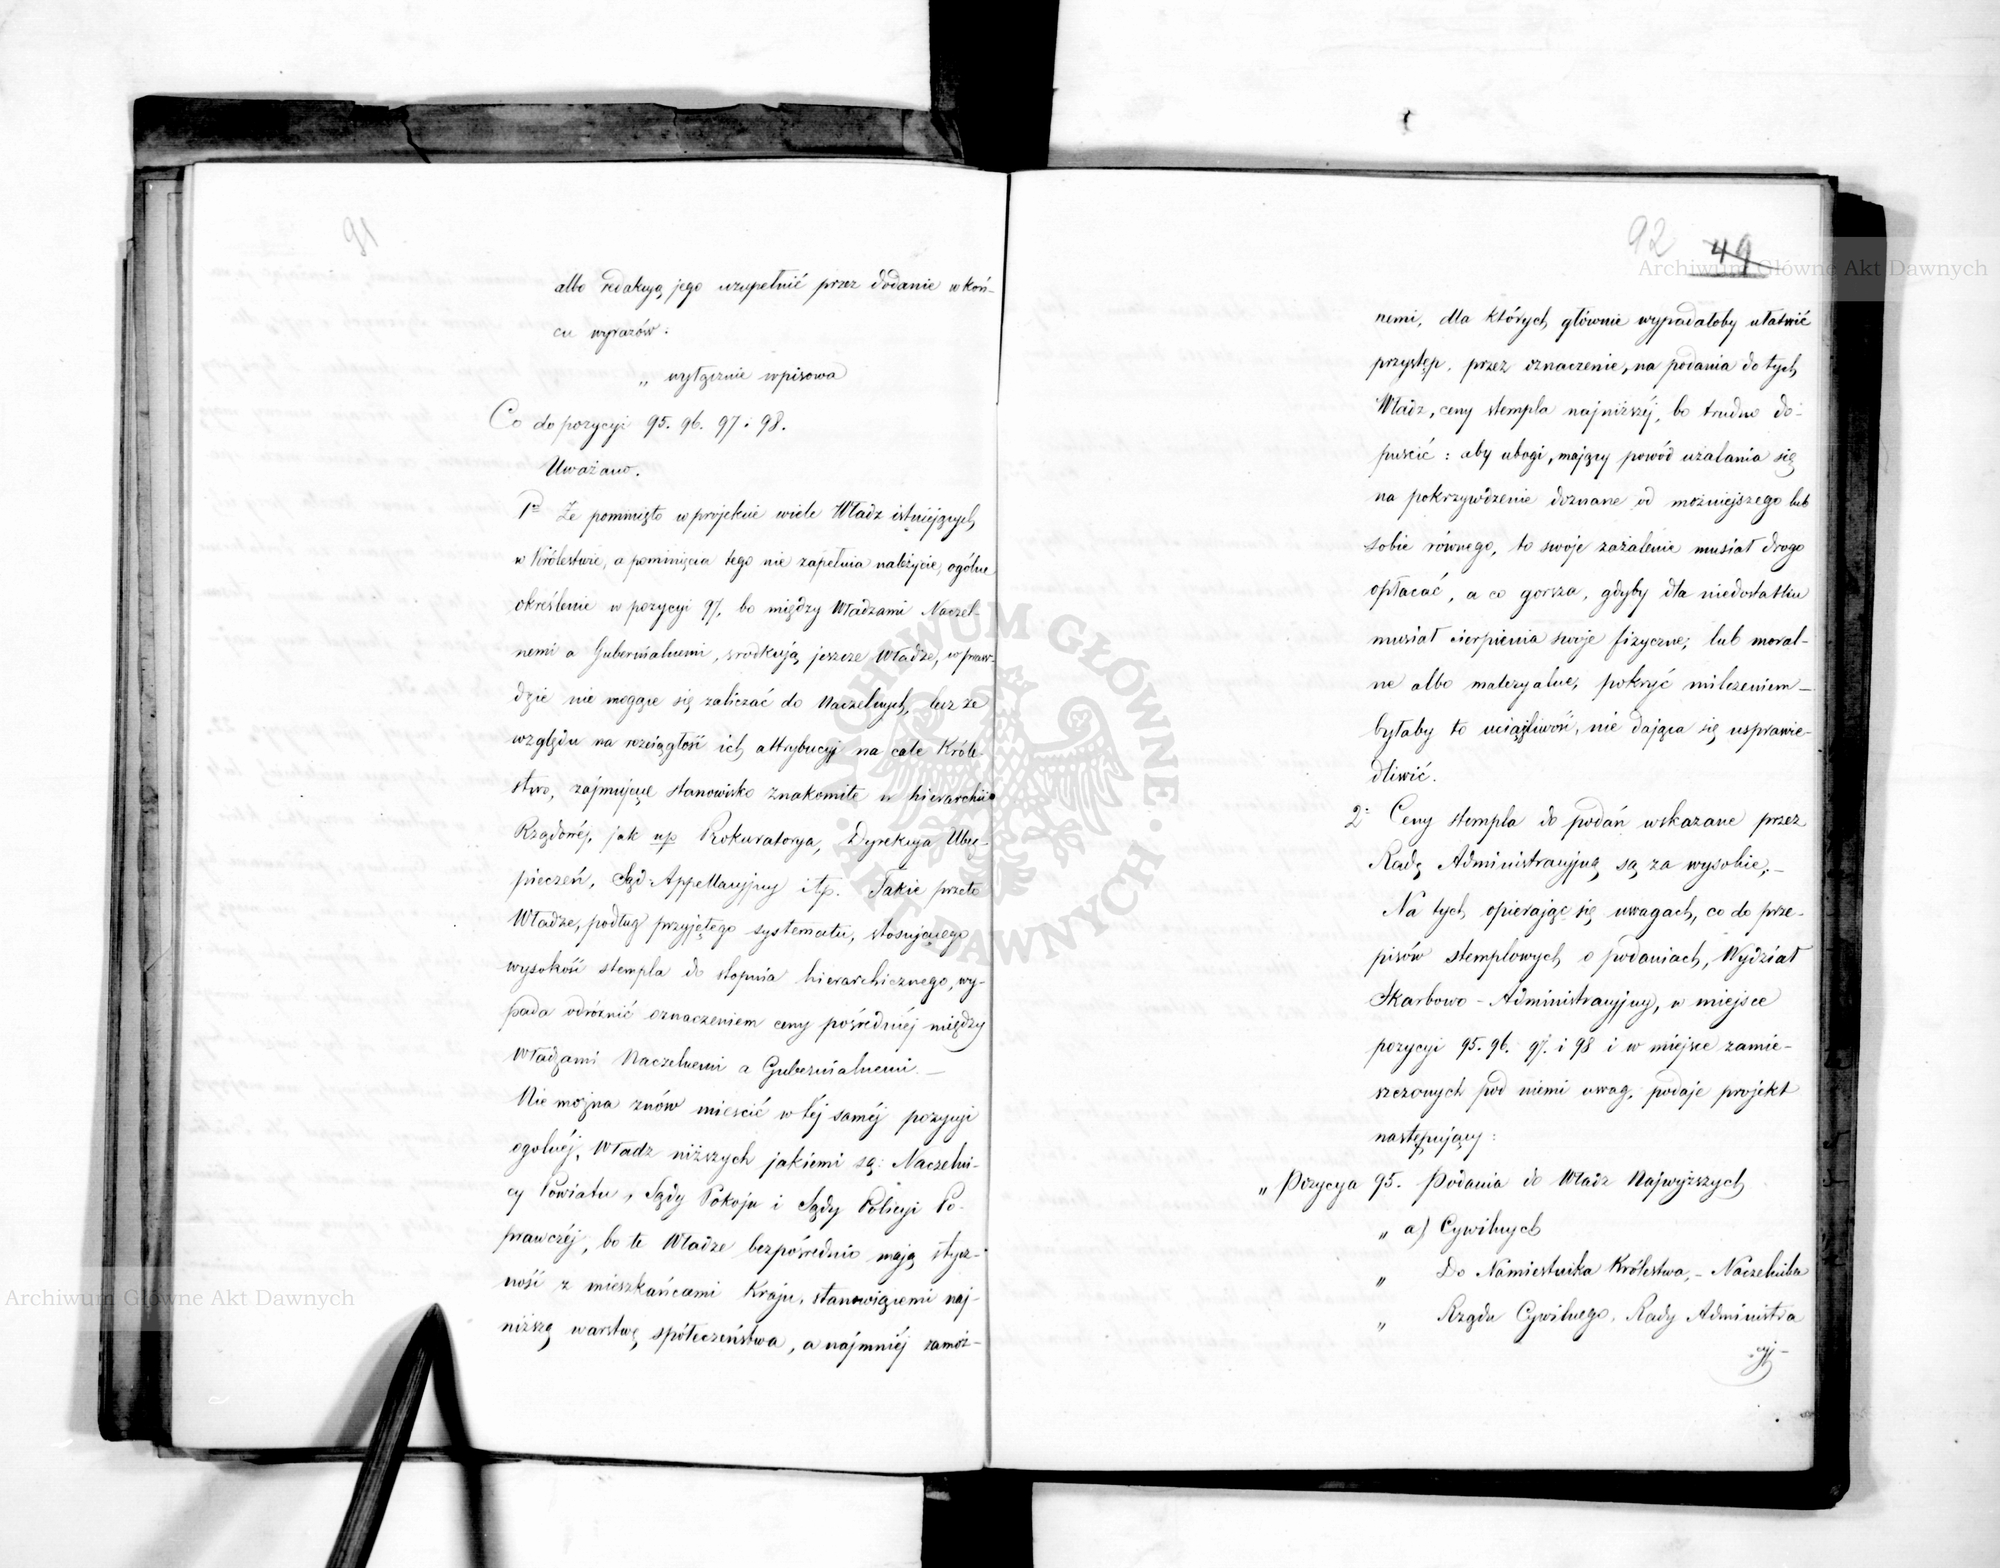 91
albo redakcyą jego uzupełnić przez dodanie w koń-
cu wyrazów:
„ wyłącznie wpisowa
Co do pozycyi 95. 96. 97 i 98.
Uważano.
1º Że pominięto w projekcie wiele Władz istniejących
w Królestwie, a pominięcia tego nie zapełnia należycie, ogólne
określenie w pozycyi 97, bo między Władzami Naczel-
nemi a Gubernialnemi, środkują jeszcze Władze, wpraw-
dzie nie mogące się zaliczać do Naczelnych, lecz ze
względu na rozciągłość ich attrybucyj na całe Króle-
stwo, zajmujące stanowisko znakomite w hierarchii
Rządowej, jak np Prokuratorya, Dyrekcya Ubez-
pieczeń, Sąd Appellacyjny itp. Takie przeto
Władze, podług przyjętego systematu, stosującego
wysokość stempla do stopnia hierarchicznego, wy-
pada odróżnić oznaczeniem ceny pośredniéj między
Władzami Naczelnemi a Gubernialnemi. —
Nie można znów mieścić w téj saméj pozycyi
ogólnéj, Władz niższych jakiemi są: Naczelni-
cy Powiatu, Sądy Pokoju i Sądy Policyi Po-
prawczéj, bo te Władze bezpośrednio mają stycz-
ność z mieszkańcami Kraju, stanowiącemi naj-
niższą warstwę społeczeństwa, a najmniéj zamoż-
92 49
nemi, dla których głównie wypadałoby ułatwić
przystęp, przez oznaczenie, na podania do tych
Władz, ceny stempla najniższéj, bo trudno do-
puścić: aby ubogi, mający powód użalania się
na pokrzywdzenie doznane od możniejszego lub
sobie równego, to swoje zażalenie musiał drogo
opłacać, a co gorsza, gdyby dla niedostatku
musiał cierpienia swoje fizyczne, lub moral-
ne albo materyalne, pokryć milczeniem —
byłaby to uciążliwość, nie dająca się usprawie-
dliwić.
2º Ceny stempla do podań wskazane przez
Radę Administracyjną są za wysokie, —
Na tych opierając się uwagach, co do prze-
pisów stemplowych o podaniach, Wydział
Skarbowo - Administracyjny, w miejsce
pozycyi 95. 96. 97. i 98 i w miejsce zamie-
szczonych pod niemi uwag, podaje projekt
następujący:
„ Pozycya 95. Podania do Władz Najwyższych
„ a) Cywilnych
„ Do Namiestnika Królestwa, — Naczelnika
„ Rządu Cywilnego, Rady Administra
cyj-
Archiwum Główne Akt Dawnych
Archiwum Główne Akt Dawnych
ARCHIWUM GŁÓWNE · AKT DAWNYCH ·